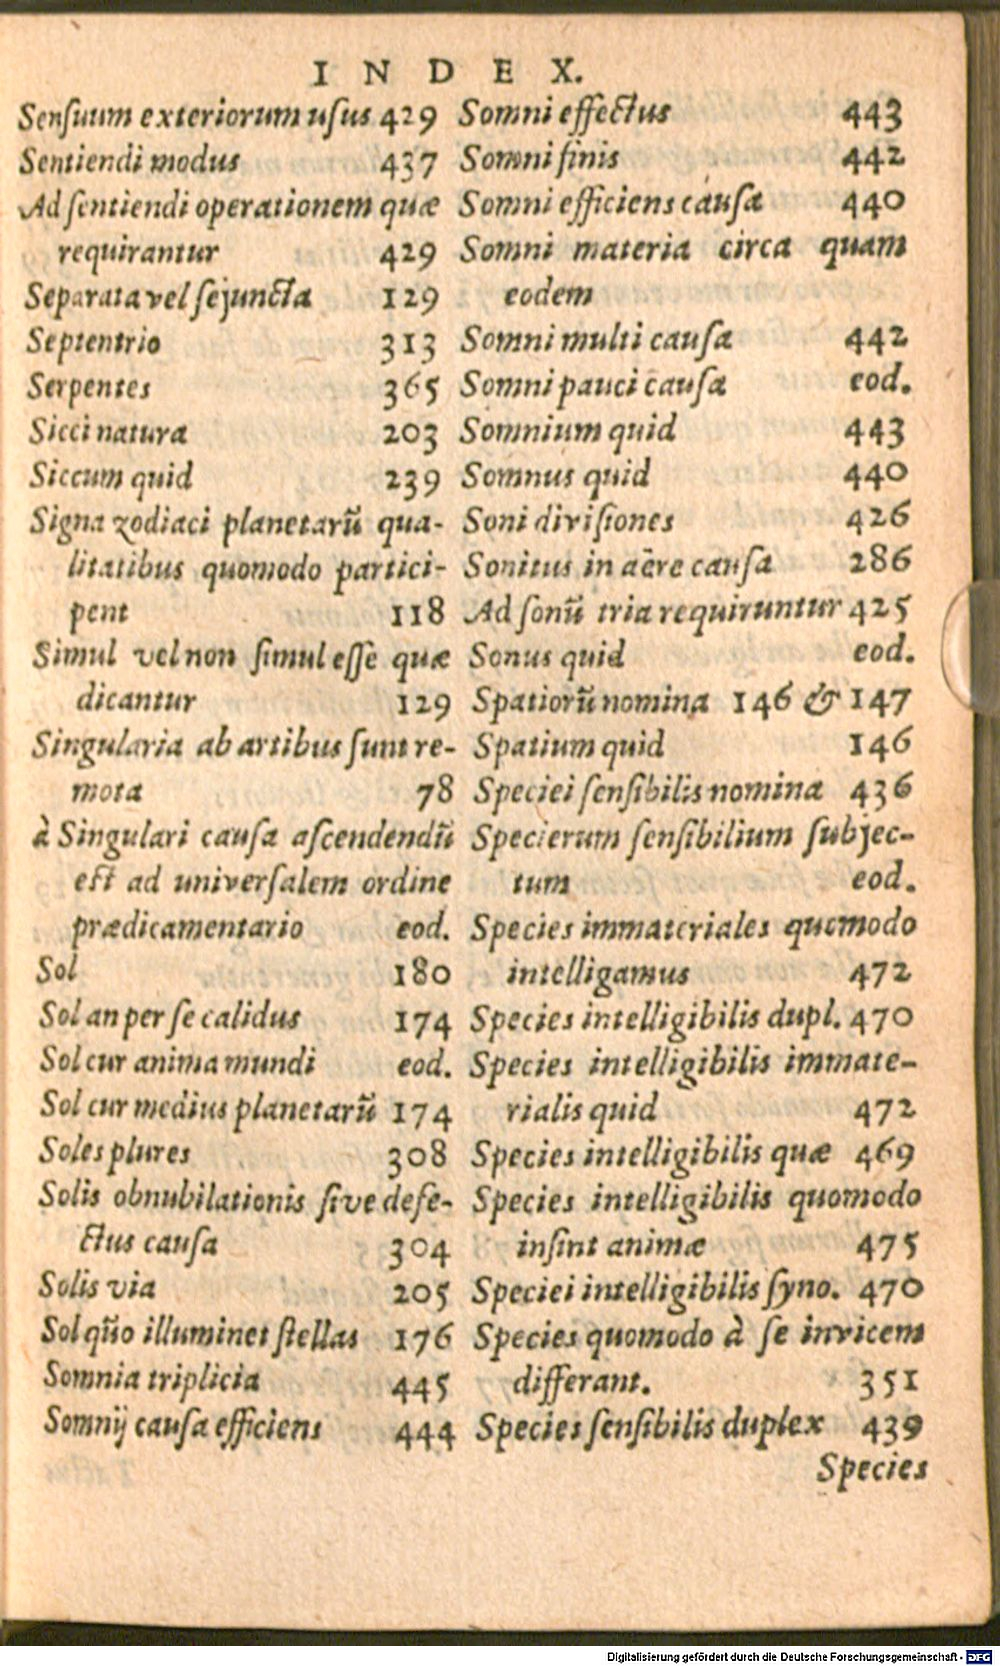 INDEX.
Sensuum exteriorum usus 429
Sentiendi modus 437
Ad sentiendi operationem quæ
requirantur 429
Separata vel sejuncta 129
Septentrio 313
Serpentes 365
Sicci natura 203
Siccum quid 239
Signa zodiaci planetarũ qua-
litatibus quomodo partici-
pent 118
Simul vel non simul esse quæ
dicantur 129
Singularia ab artibus sunt re-
mota 78
à Singulari causa ascendendũ
est ad universalem ordine
prædicamentario eod.
Sol 180
Sol an per se calidus 174
Sol cur anima mundi eod.
Sol cur medius planetarũ 174
Soles plures 308
Solis obnubilationis sive defe-
ctus causa 304
Solis via 205
Sol quõ illuminet stellas 176
Somnia triplicia 445
Somnij causa efficiens 444
Somni effectus 443
Somni finis 442
Somni efficiens causa 440
Somni materia circa quam
eodem
Somni multi causa 442
Somni pauci causa eod.
Somnium quid 443
Somnus quid 440
Soni divisiones 426
Sonitus in aëre causa 286
Ad sonũ tria requiruntur 425
Sonus quid eod.
Spatiorũ nomina 146 & 147
Spatium quid 146
Speciei sensibilis nomina 436
Specierum sensibilium subjec-
tum eod.
Species immateriales quomodo
intelligamus 472
Species intelligibilis dupl. 470
Species intelligibilis immate-
rialis quid 472
Species intelligibilis quæ 469
Species intelligibilis quomodo
insint animæ 475
Speciei intelligibilis syno. 470
Species quomodo à se invicem
differant. 351
Species sensibilis duplex 439
Species
Digitalisierung gefördert durch die Deutsche Forschungsgemeinschaft - DFG